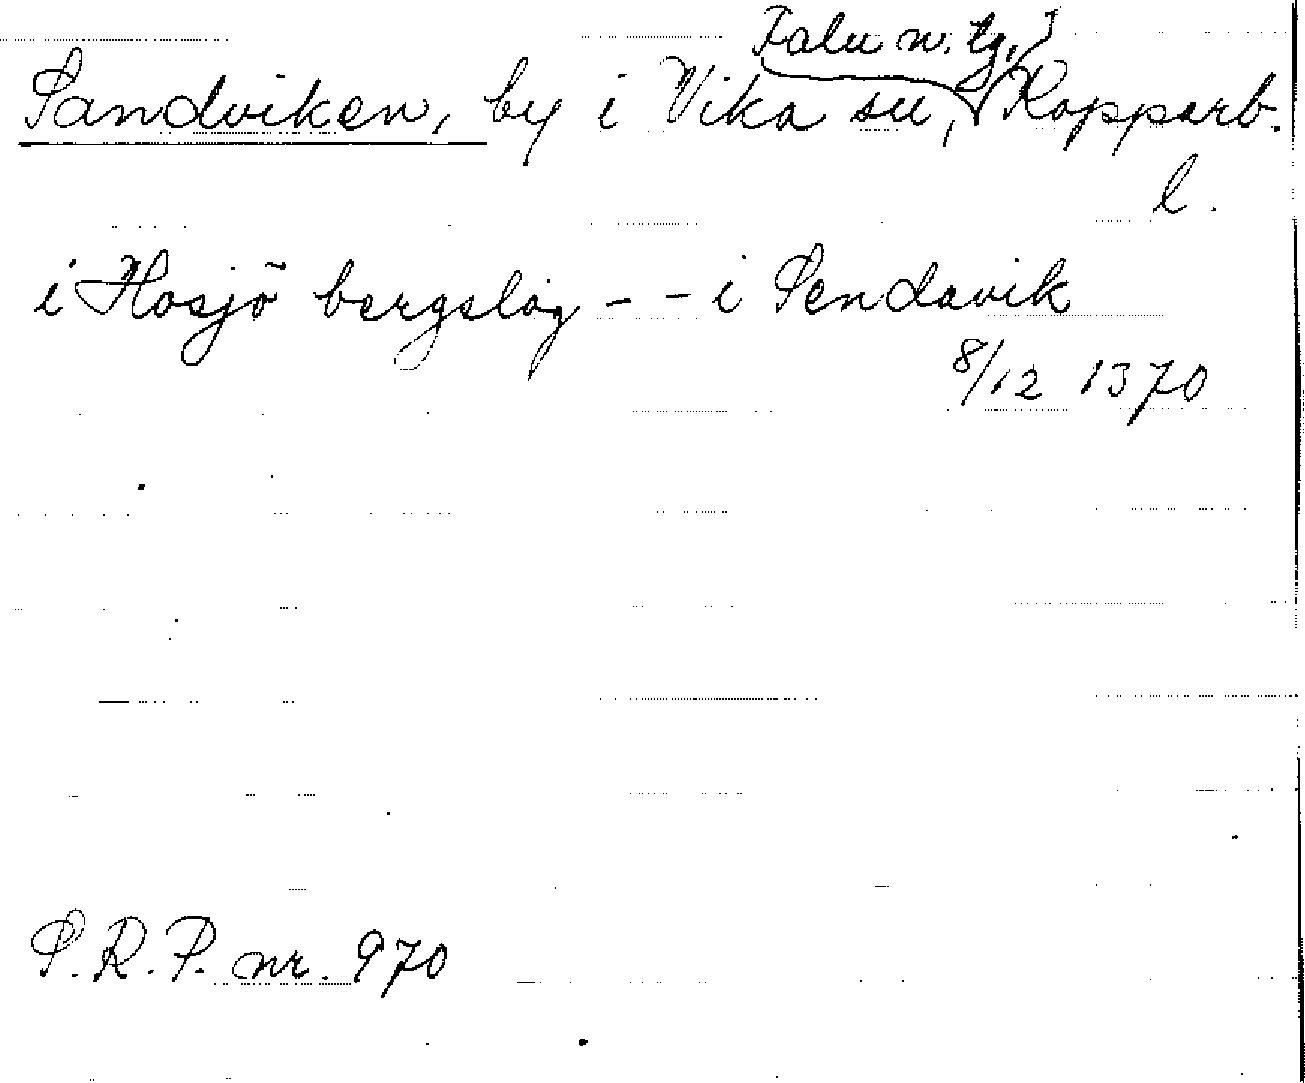 Falu n. tg.,
Sandviken, by i Vika sn, Kopparb.
l.
i Hosjö bergslag - - i Sendavik
8/12 1370
S.R.P. nr. 970